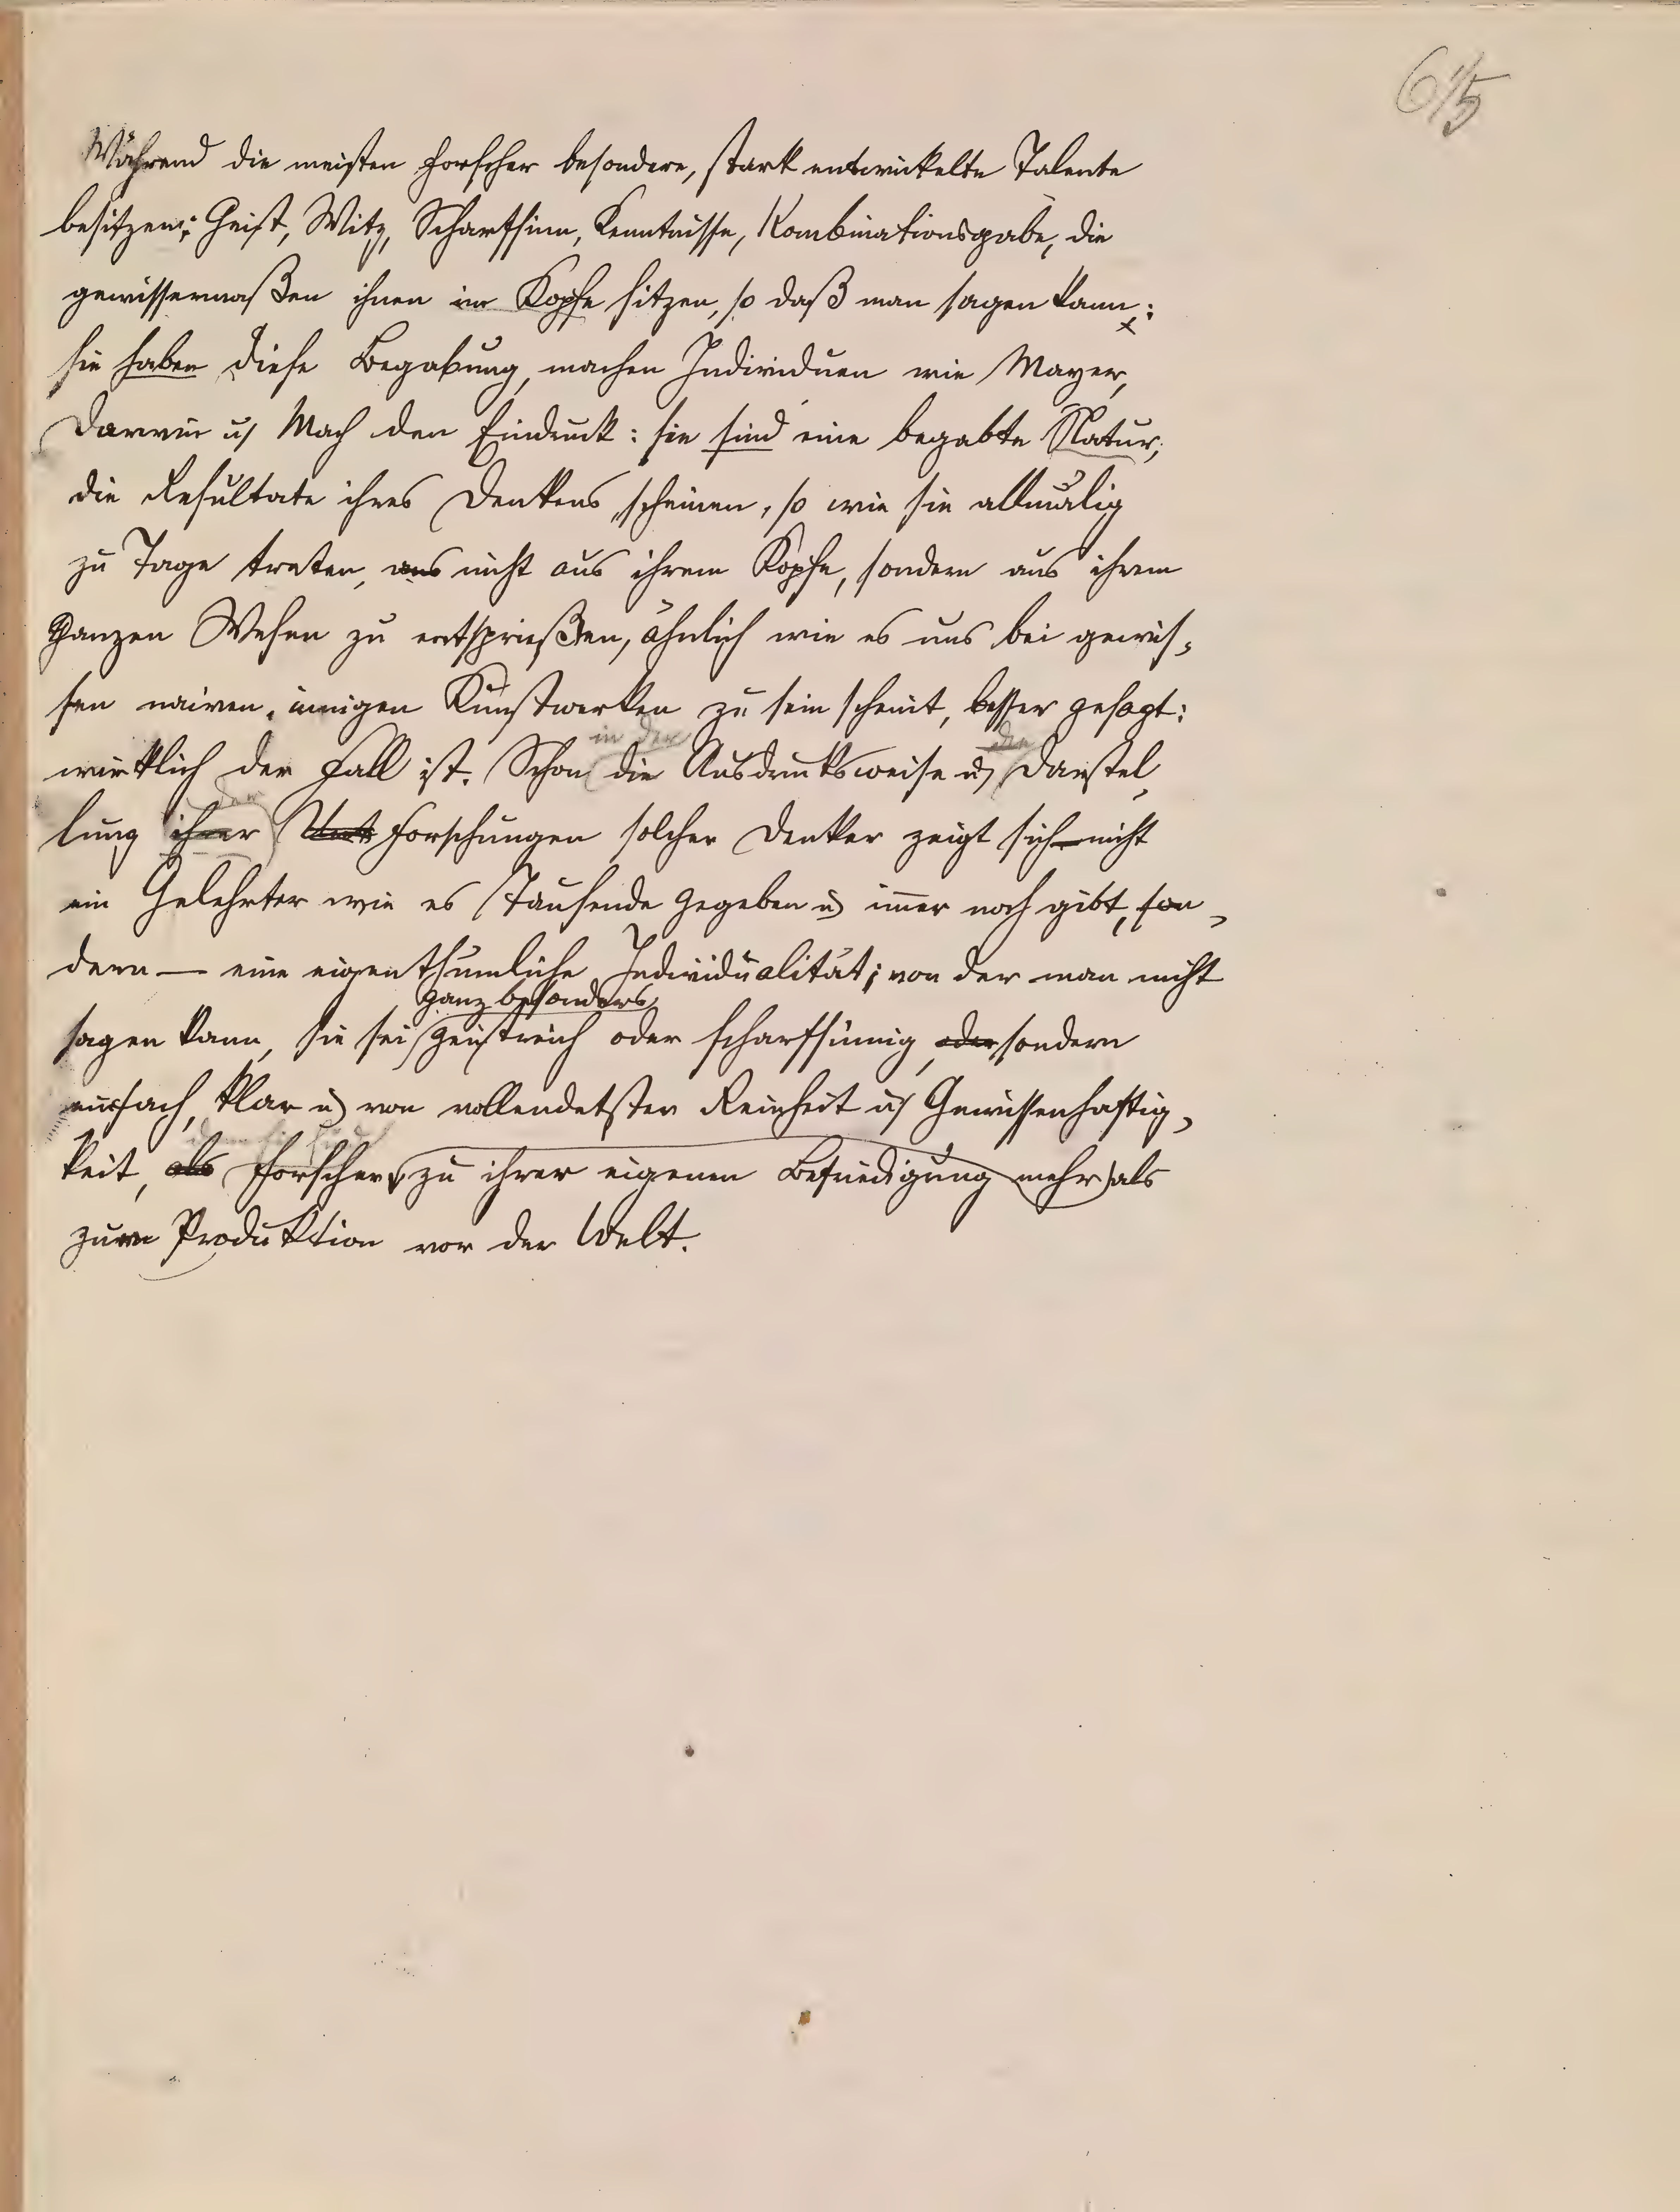 6/5
Während die meisten Forscher besondere, stark entwickelte Talente
besitzen: Geist, Witz, Scharfsinn, Kenntnisse, Kombinationsgabe, die
gewissermaßen ihnen im Kopfe sitzen, so daß man sagen kann:
sie haben diese Begabung, machen Individuen wie Mayer,
Darwin u. Mach den Eindruck: sie sind eine begabte Natur;
die Resultate ihres Denkens scheinen, so wie sie allmälig
zu Tage treten, aus nicht aus ihrem Kopfe, sondern aus ihrem
ganzen Wesen zu entsprießen, ähnlich wie es uns bei gewis-
sen naiven, innigen Kunstwerken zu sein scheint, besser gesagt:
in der der
wirklich der Fall ist. Schon die Ausdrucksweise u. Darstel-
der
lung ihrer Forschungen solcher Denker zeigt sich nicht
ein Gelehrter wie es Tausende gegeben u. im̅er noch gibt, son-
dern — eine eigenthümliche Individualität; von der man nicht
ganz besonders
sagen kann, sie sei geistreich oder scharfsinnig, oder sondern
einfach, klar u. von vollendetster Reinheit u. Gewissenhaftig-
keit, als Forscher zu ihrer eigenen Befriedigung mehr als
zur Produktion vor der Welt.